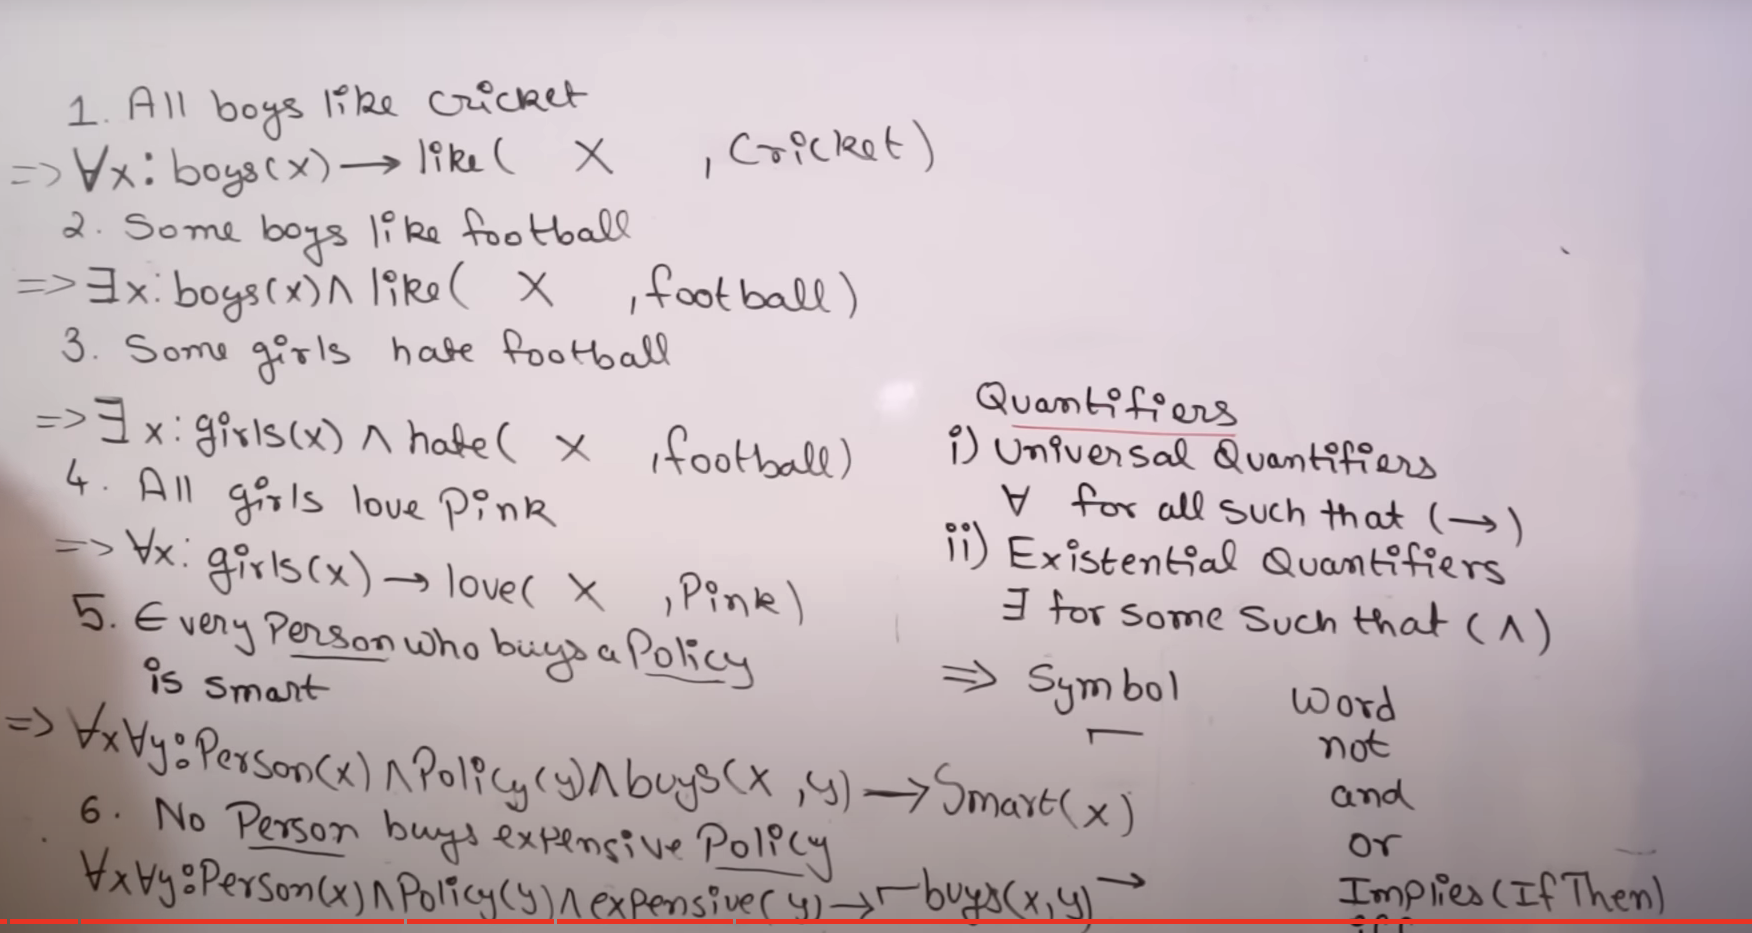 1. All boys like cricket
=> ∀x: boys(x) → like( X , Cricket)
2. Some boys like football
=> ∃x: boys(x) ∧ like( X , football)
3. Some girls hate football
=> ∃x: girls(x) ∧ hate( X , football)
4. All girls love Pink
=> ∀x: girls(x) → love( X , Pink)
5. Every Person who buys a Policy
is smart
=> ∀x∀y: Person(x) ∧ Policy(y) ∧ buys(x, y) → Smart(x)
6. No Person buys expensive Policy
∀x∀y: Person(x) ∧ Policy(y) ∧ expensive(y) → ⌐buys(x, y)
Quantifiers
i) Universal Quantifiers
∀ for all such that (→)
ii) Existential Quantifiers
∃ for some such that (∧)
=> Symbol Word
⌐ not
and
or
→ Implies (If Then)